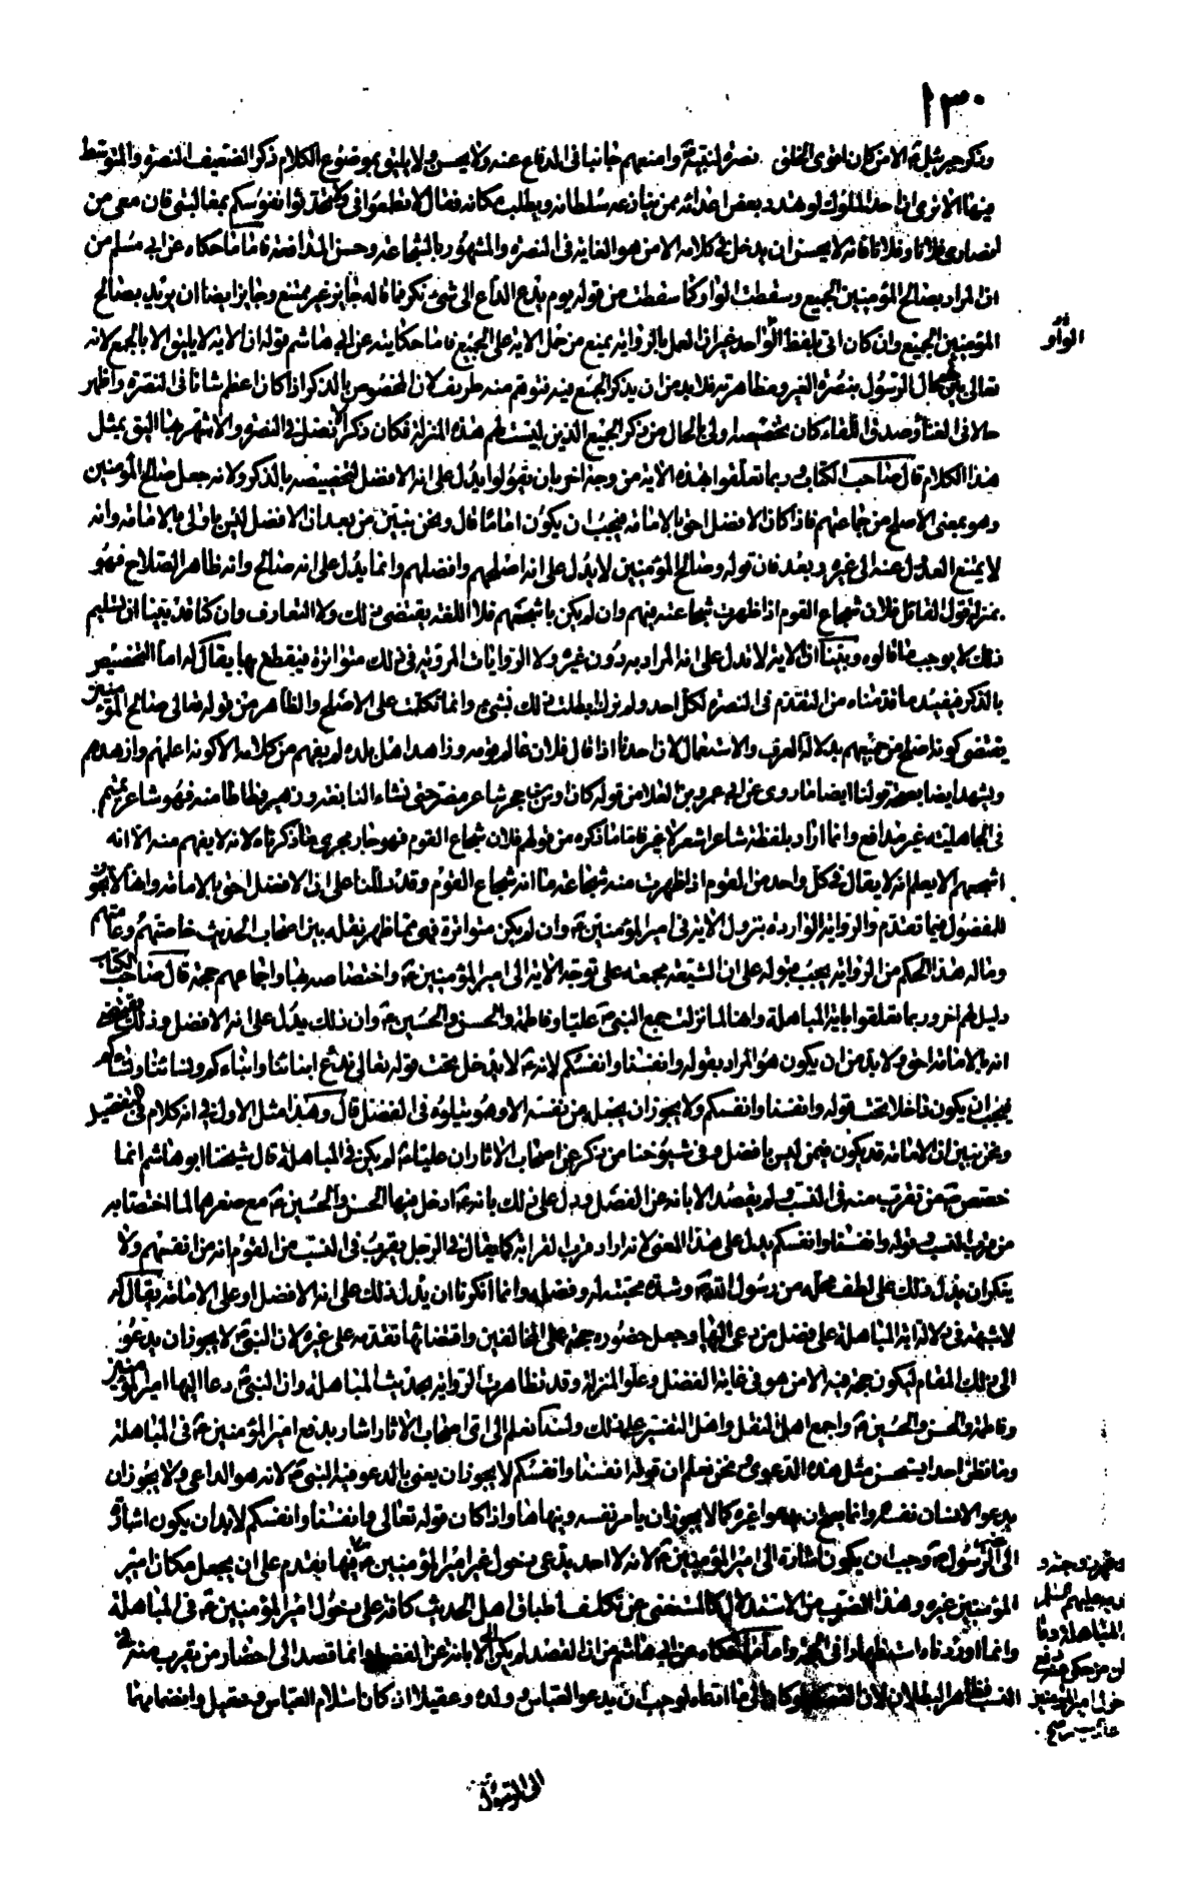 ١٣٠
وذكر جبرئيل ع الا من كان اقوى الخلق نصرة لنبيه ع وامنعهم جانبا في الدفاع عنه ولا يحسن ولا يليق بموضوع الكلام ذكر الضعيف النصرة والمتوسط
فيها الا ترى ان احد الملوك لو تهدد بعض اعدائه ممن ينازعه سلطانه ويطلب مكانه فقال لا تطمعوا في ولا تحدثوا نفوسكم بمغالبتي فان معي من
انصاري فلانا وفلانا فانه لا يحسن ان يدخل في كلامه الا من هو الغاية في النصرة والمشهور بالشجاعة وحسن المدافعة فاما ما حكاه عن ابي مسلم من
ان المراد بصالح المؤمنين الجميع وسقطت الواو كما سقطت من قوله يوم يدع الداع الى شيء نكر فما قاله جايز غير ممتنع وجايز ايضا ان يريد بصالح
المؤمنين الجميع وان كان اتى بلفظ الواحد غير ان العمل بالرواية يمنع من حمل الاية على الجميع فاما حكايته عن ابي هاشم قوله ان الاية لا يليق الا بالجمع لانه
الواو
تعالى بين حال الرسول بنصرة الغير ومظاهرته فلا بد من ان يذكر الجميع فيه فتوهم منه طريف لان المخصوص بالذكر اذا كان اعظم شانا في النصرة واظهر
حالا في الغناء وصدق اللقاء كان تخصيصه اولى بالحال من ذكر الجميع الذين ليست لهم هذه المنزلة فكان ذكر الافضل في النصرة والاشهر بها اليق بمثل
هذا الكلام قال صاحب الكتاب وربما تعلقوا بهذه الاية من وجه اخر بان يقولوا يدل على انه الافضل لتخصيصه بالذكر ولانه جعل صالح المؤمنين
وهو بمعنى الاصلح من جماعتهم فاذا كان الافضل احق بالامامة فيجب ان يكون اماما قال ونحن نبين من بعد ان الافضل ليس باولى بالامامة وانه
لا يمتنع العدول عنه الى غيره وبعد فان قوله وصالح المؤمنين لا يدل على انه اصلحهم وافضلهم وانما يدل على انه صالح وانه ظاهر الصلاح فهو
بمنزلة قول القائل فلان شجاع القوم اذا ظهرت شجاعته فيهم وان لم يكن باشجعهم فلا اللغة يقتضي ذلك ولا التعارف وان كنا قد بينا ان تسليم
ذلك لا يوجب ما قالوه وبينا ان الاية لا تدل على انه المراد به دون غيره ولا الروايات المروية في ذلك متواترة فيقطع بها يقال له اما التخصيص
بالذكر فيفيد ما قدمناه من التقدم في النصرة لكل احد ولم نرك ابطلت ذلك بشيء وانما تكلمت على الاصلح والظاهر من قوله تعالى صالح المؤمنين
يقتضي كونه اصلح من جميعهم بدلالة العرف والاستعمال لان احدنا اذا قال فلان عالم قومه وزاهد اهل بلده لم يفهم من كلامه الا كونه اعلمهم وازهدهم
ويشهد ايضا بصحة قولنا ايضا ما روى عن ابي عمرو بن العلا من قوله كان اوس بن حجر شاعر مضر حتى نشاء النابغة وزهير فطاطا منه فهو شاعر تميم
في الجاهلية غير مدافع وانما اراد بلفظة شاعر اشعر لا غير فاما ما ذكره من قولهم فلان شجاع القوم فهو جار مجرى ما ذكرناه لانه لا يفهم منه الا انه
اشجعهم الا يعلم انه لا يقال في كل واحد من القوم اذا ظهرت منه شجاعة ما انه شجاع القوم وقد دللنا على ان الافضل احق بالامامة وانها لا تجوز
للمفضول فيما تقدم والرواية الواردة بنزول الاية في امير المؤمنين ع وان لم يكن متواترة فهي مما ظهر نقله بين اصحاب الحديث خاصتهم وعامتهم
وماله هذا الحكم من الرواية يجب قبوله على ان الشيعة مجمعة على توجه الاية الى امير المؤمنين ع واختصاصه بها واجماعهم حجة قال صاحب الكتاب
دليل لهم اخر وربما تعلقوا باية المباهلة وانها لما نزلت جمع النبي ص عليا وفاطمة والحسن والحسين ع وان ذلك يدل على انه الافضل وذلك يقتضي
انه بالامامة احق ولا بد من ان يكون هو المراد بقوله وانفسنا وانفسكم لانه ع لا يدخل تحت قوله تعالى ندع ابنائنا وابناءكم ونسائنا ونساءكم
فيجب ان يكون داخلا تحت قوله وانفسنا وانفسكم ولا يجوز ان يجعل من نفسه الا وهو يتلوه في الفضل قال وهذا مثل الاول في انه كلام في التفضيل
ونحن نبين ان الامامة قد يكون فيمن ليس بافضل وفي شيوخنا من ذكر عن اصحاب الاثار ان عليا ع لم يكن في المباهلة قال شيخنا ابو هاشم انما
خصص ص من تقرب منه في النسب ولم يقصد الابانة عن الفضل ودل على ذلك بانه ع ادخل فيها الحسن والحسين ع مع صغرهما لما اختصا به
من قرب النسب وقوله وانفسنا وانفسكم يدل على هذا المعنى لانه اراد قرب القرابة كما يقال في الرجل يقرب في النسب من القوم انه من انفسهم ولا
ينكر ان يدل ذلك على لطف محله من رسول الله ص وشدة محبته له وفضله وانما انكرنا ان يدل ذلك على انه الافضل او على الامامة يقال له
لا شبهة في دلالة اية المباهلة على فضل من دعي اليها وجعل حضوره حجة على المخالفين واقتضائها تقدمه على غيره لان النبي ص لا يجوز ان يدعو
الى ذلك المقام ليكون حجة فيه الا من هو في غاية الفضل وعلو المنزلة وقد تظاهرت الرواية بحديث المباهلة وان النبي ص دعا اليها امير المؤمنين
وفاطمة والحسن والحسين ع واجمع اهل النقل واهل التفسير على ذلك ولسنا نعلم الى اى اصحاب الاثار اشار بدفع امير المؤمنين ع في المباهلة
وما نظن احدا يستحسن مثل هذه الدعوى ونحن نعلم ان قوله انفسنا وانفسكم لا يجوز ان يعنى بالمدعو فيه النبي ص لانه هو الداعي ولا يجوز ان
يدعو الانسان نفسه وانما يصح ان يدعوا غيره كما لا يجوز ان يامر نفسه وينهاها واذا كان قوله تعالى وانفسنا وانفسكم لا بد ان يكون اشارة
الى غير الرسول ص وجب ان يكون اشارة الى امير المؤمنين ع لانه لا احد يدعي دخول غير امير المؤمنين ع فيها
المؤمنين غيره وهذا الضرب من الاستدلال كالمستغنى عن تكلف اطباق اهل الحديث كافة على دخول امير المؤمنين ع في المباهلة
وانما اوردناه استظهارا في الحجة واما ما حكاه عن ابي هاشم من ان القصد لم يكن الى الابانة عن الفضل وانما قصد الى احضار من يقرب منه في
النسب فظاهر البطلان لان القصد لو كان الى ما ادعاه لوجب ان يدعو العباس وولده وعقيلا اذ كان اسلام العباس وعقيل وانضمامهما
الى الرسول